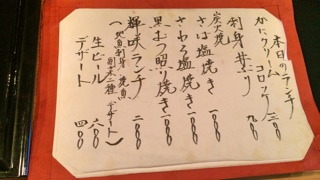 本日のランチ
かにクリームコロッケ
刺身丼ぶり 九〇〇
炭火焼
さば塩焼き 一〇〇〇
さわら塩焼き 一〇〇〇
黒むつ照り焼き 一〇〇〇
輝咲ランチ 二〇〇〇
デザート
生ビール 六〇〇
デザート 四〇〇